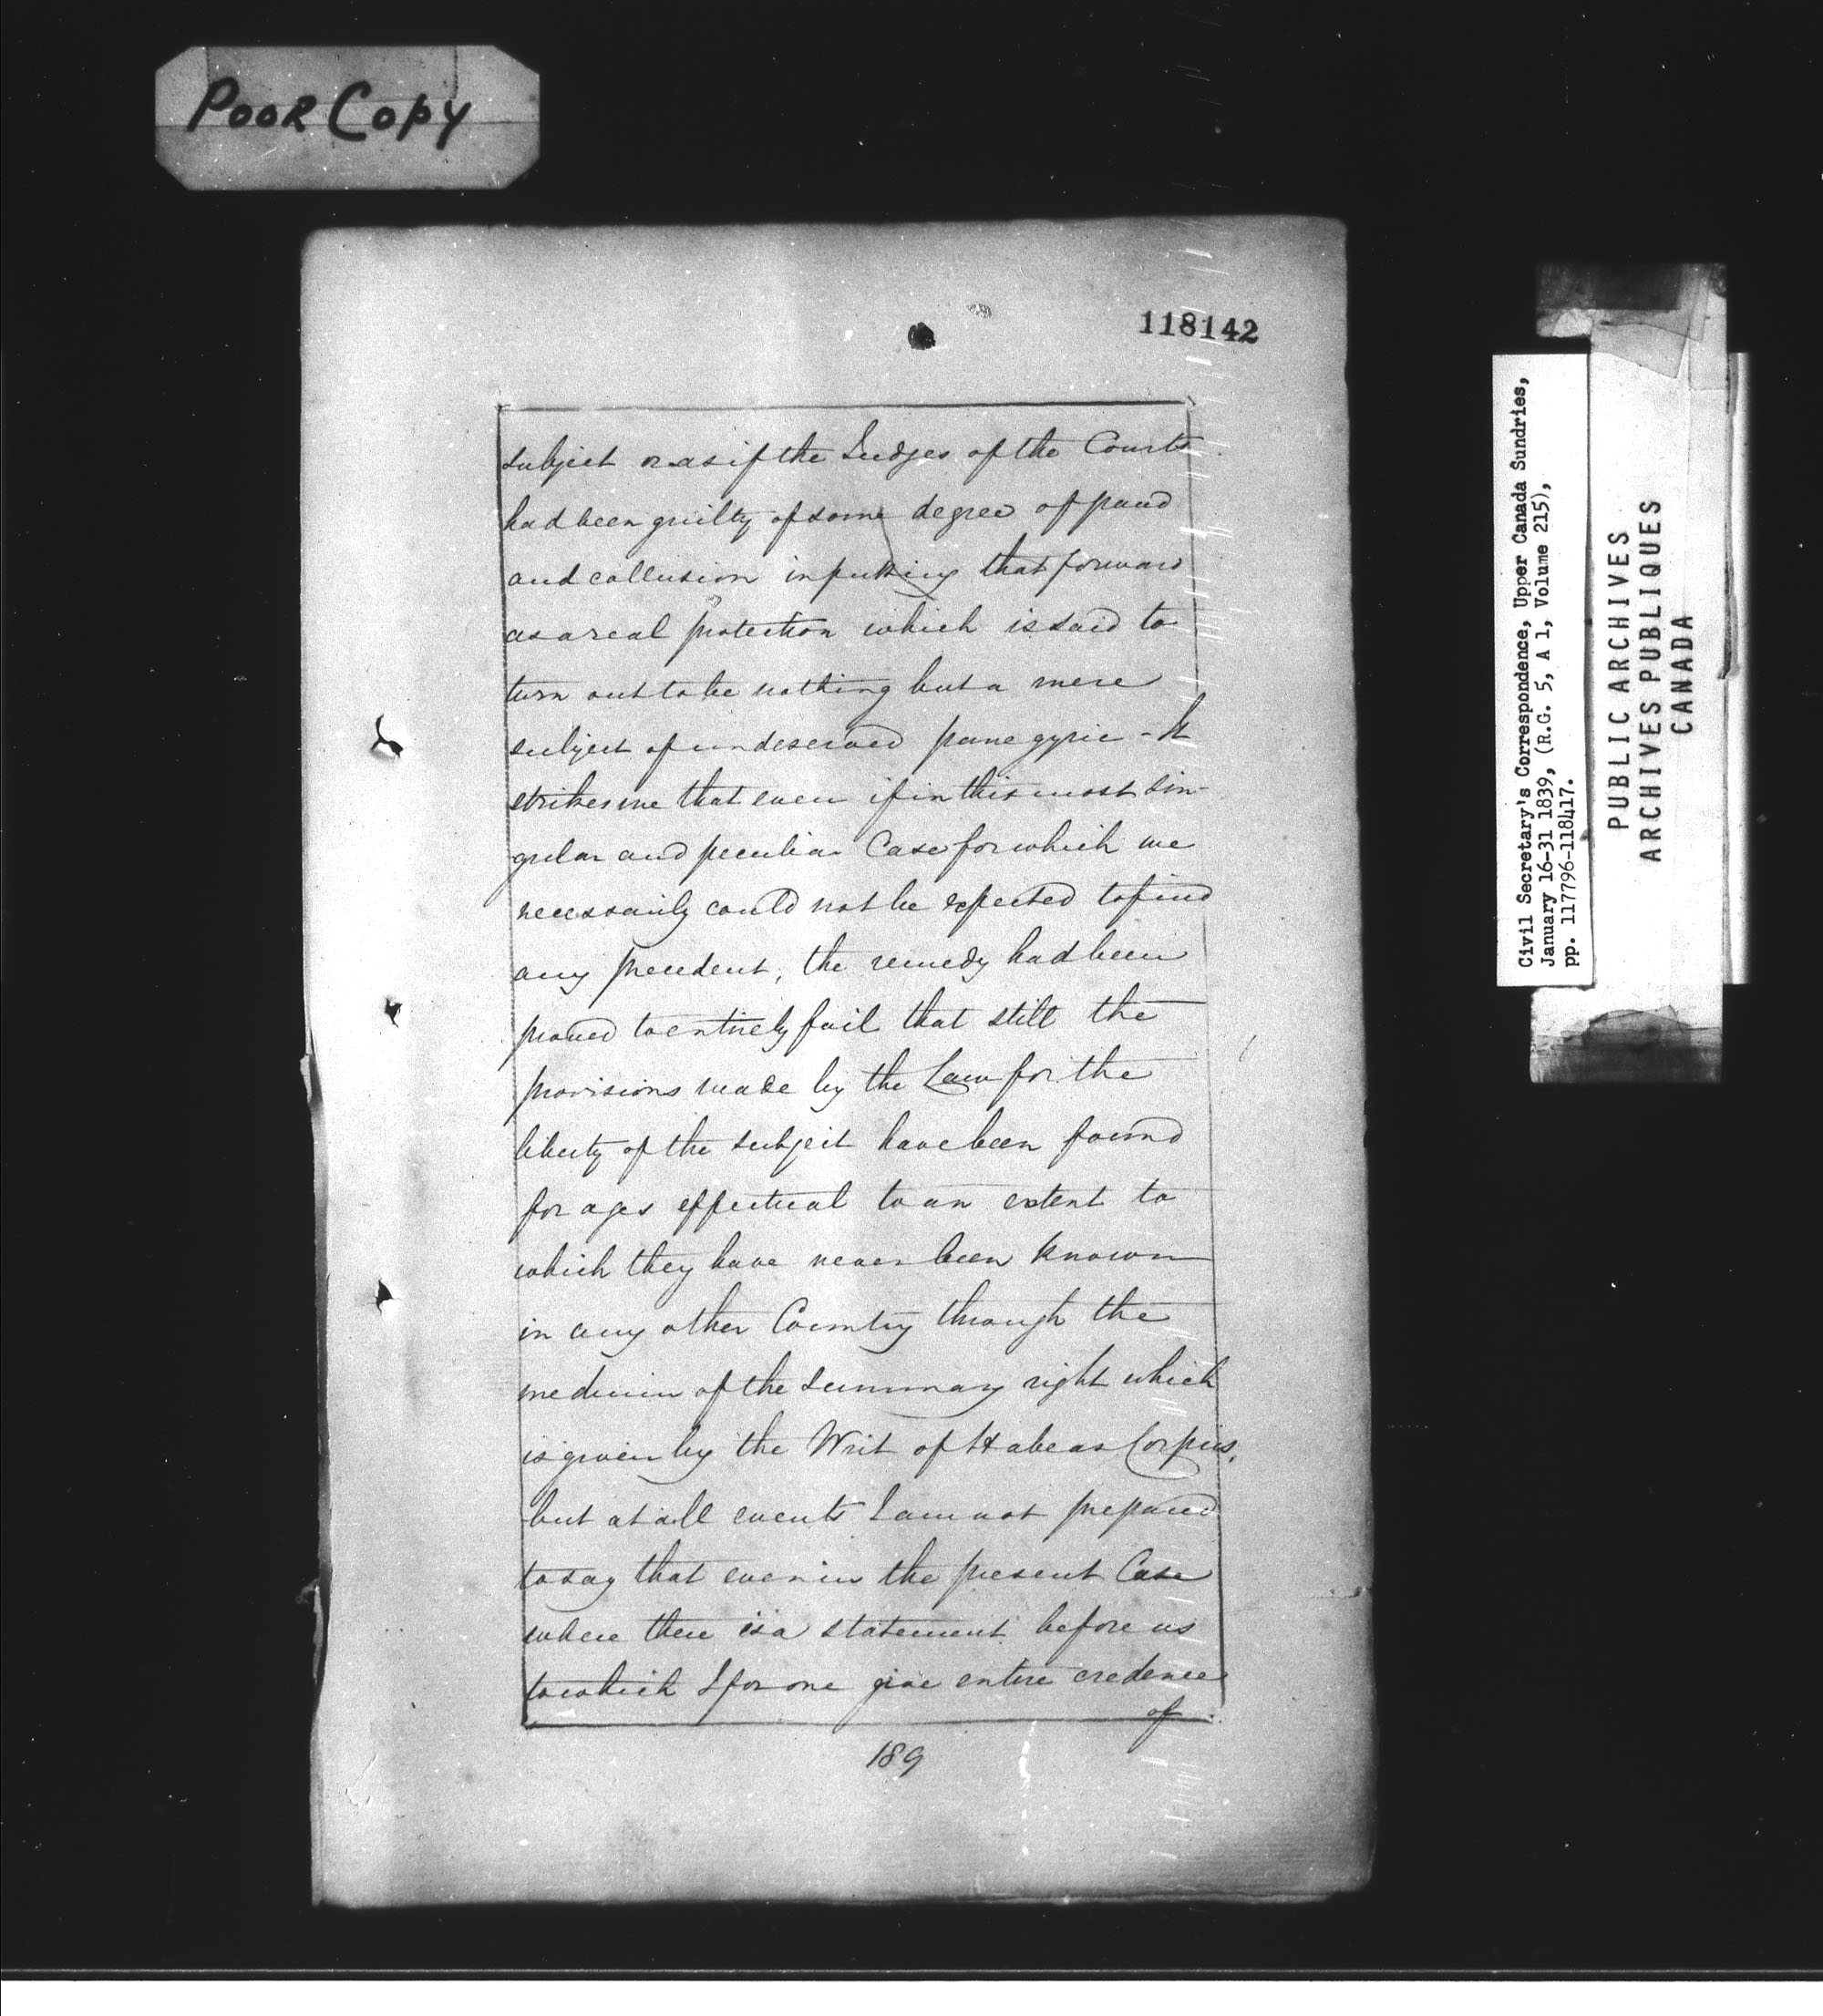 POOR COPY
118142
subject or as if the Judges of the Courts
had been guilty of some degree of fraud
and collusion in putting that forward
as a real protection which is said to
turn out to be nothing but a mere
subject of undeserved panegyric - It
strikes me that even if in this most sin-
gular and peculiar Case for which we
necessarily could not be expected to find
any precedent, the remedy had been
proved to entirely fail that still the
provisions made by the Law for the
liberty of the subject have been found
for ages effectual to an extent to
which they have never been known
in any other Country through the
medium of the summary right which
is given by the Writ of Habeas Corpus,
but at all events I am not prepared
to say that even in the present Case
where there is a statement before us
to which I for one give entire credence
of
189
Civil Secretary's Correspondence, Upper Canada Sundries,
January 16-31 1839, (R.G. 5, A 1, Volume 215),
pp. 117796-118417.
PUBLIC ARCHIVES
ARCHIVES PUBLIQUES
CANADA